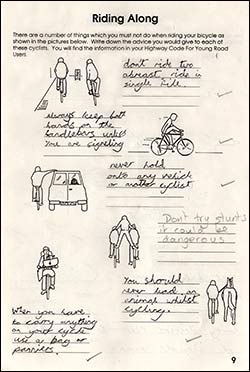 Riding Along
There are a number of things which you must not do when riding your bicycle as
shown in the pictures below. Write down the advice you would give to each of
these cyclists. You will find the information in your Highway Code For Young Road
Users.
dont ride two
abreast ride in
single file.
always keep both
hands on the
handlebars unless
You are signelling
never hold
onto any vehicle
or another cyclist
Don't try stunts
it could be
dangerous
You should
never lead an
animal whilst
cycling.
When you have
to carry anything
on your cycle
use a bag or
paniers.
9